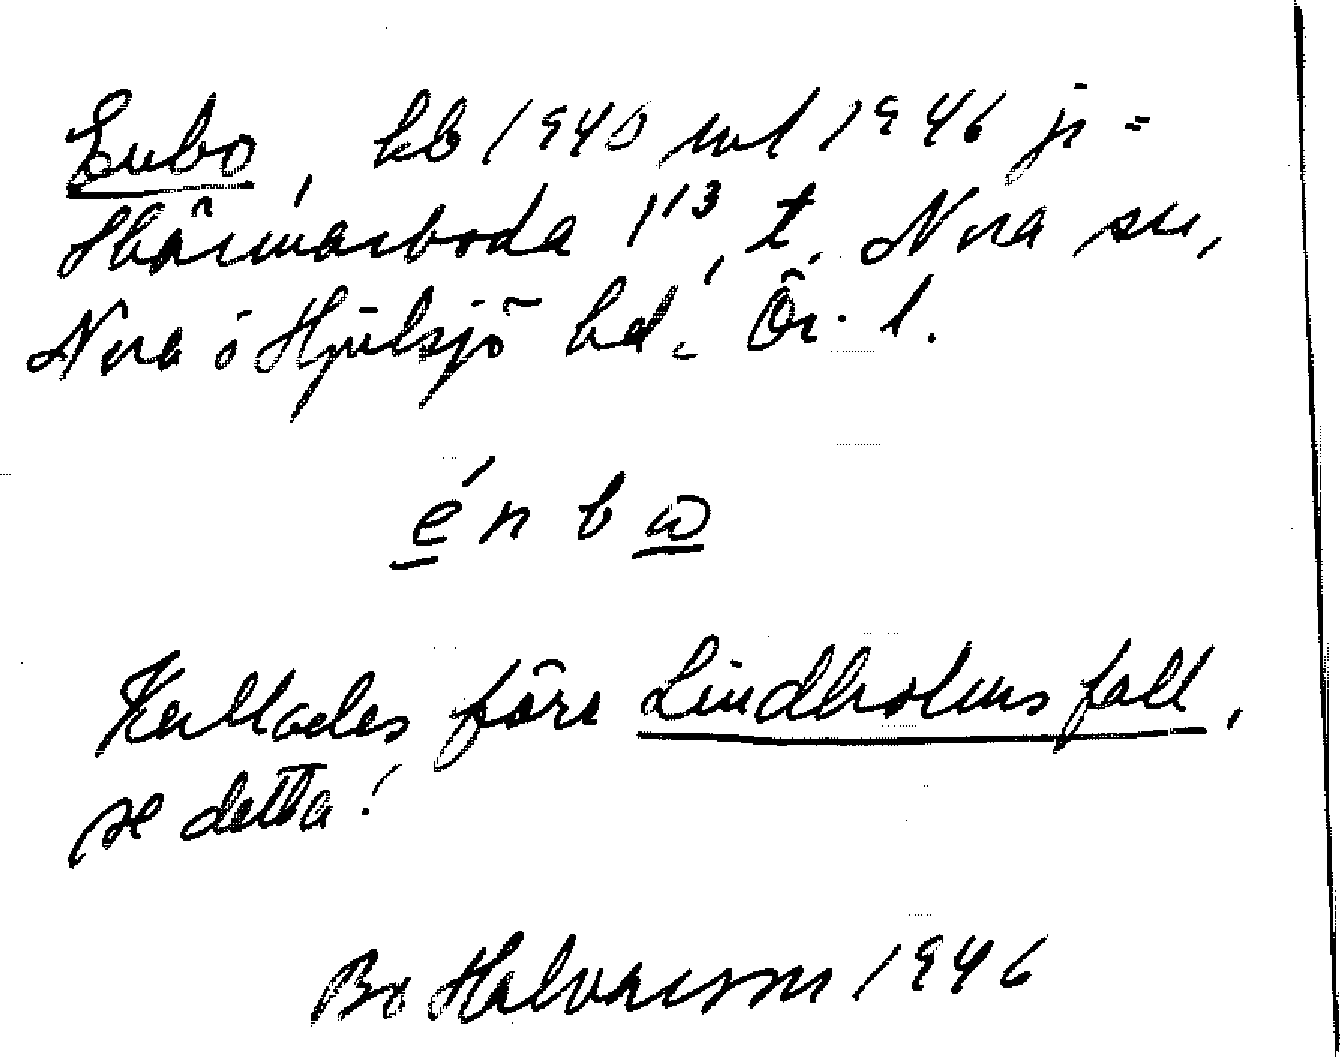 Enbo, kb 1940 uul 1946 jr =
Skärmarboda 1¹³, t. Nora sn,
Nora o Hjulsjö hd. Ör. l.
é n b ω
Kallades förr Lindholmsfall,
se detta!
Bo Halvarsson 1946